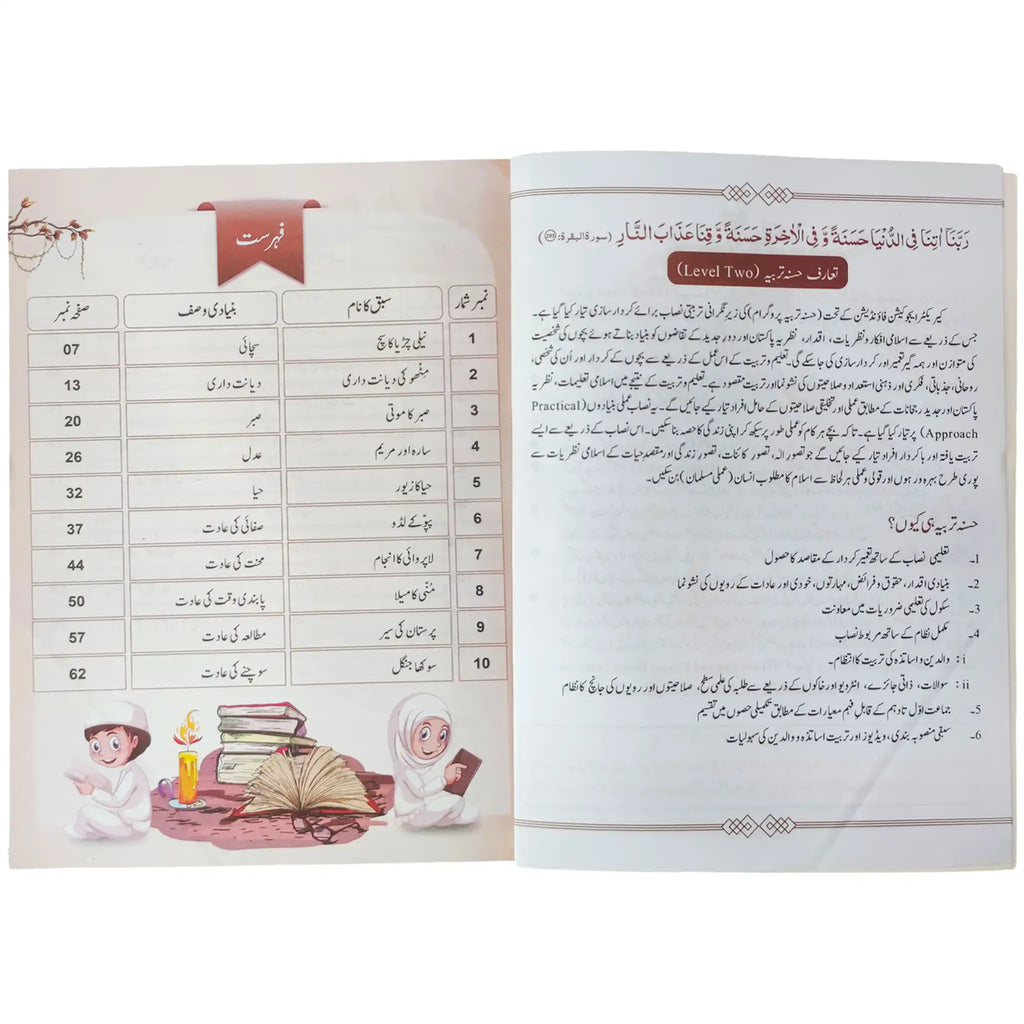 رَبَّنَآ اٰتِنَا فِی الدُّنْیَا حَسَنَةً وَّ فِی الْاٰخِرَةِ حَسَنَةً وَّ قِنَا عَذَابَ النَّارِ (سورۃ البقرۃ:)
تعارف حسنہ تربیہ (Level Two)
کیریکٹر ایجوکیشن فاؤنڈیشن کے تحت (حسنہ تربیہ پروگرام) کی زیرِ نگرانی تربیتی نصاب برائے کردار سازی تیار کیا گیا ہے۔
جس کے ذریعے سے اسلامی افکار و نظریات، اقدار، نظریہ پاکستان اور دورِ جدید کے تقاضوں کو بنیاد بناتے ہوئے بچوں کی شخصیت
کی متوازن اور ہمہ گیر تعمیر اور کردار سازی کی جا سکے گی۔ تعلیم و تربیت کے اس عمل کے ذریعے سے بچوں کے کردار اور اُن کی شخصی،
روحانی، جذباتی، فکری اور ذہنی استعداد و صلاحیتوں کی نشوونما اور تربیت مقصود ہے۔ تعلیم و تربیت کے نتیجے میں اسلامی تعلیمات، نظریہ
پاکستان اور جدید رجحانات کے مطابق عملی اور تخلیقی صلاحیتوں کے حامل افراد تیار کیے جائیں گے۔ یہ نصاب عملی بنیادوں (Practical
Approach) پر تیار کیا گیا ہے۔ تاکہ بچے ہر کام کو عملی طور پر سیکھ کر اپنی زندگی کا حصہ بنا سکیں۔ اس نصاب کے ذریعے سے ایسے
تربیت یافتہ اور باکردار افراد تیار کیے جائیں گے جو تصورِ الٰہ، تصورِ کائنات، تصورِ زندگی اور مقصدِ حیات کے اسلامی نظریات سے
پوری طرح بہرہ ور ہوں اور قولی و عملی ہر لحاظ سے اسلام کا مطلوب انسان (عملی مسلمان) بن سکیں۔
حسنہ تربیہ ہی کیوں؟
1۔ تعلیمی نصاب کے ساتھ تعمیرِ کردار کے مقاصد کا حصول
2۔ بنیادی اقدار، حقوق و فرائض، مہارتوں، خودی اور عادات کے رویوں کی نشوونما
3۔ سکول کی تعلیمی ضروریات میں معاونت
4۔ مکمل نظام کے ساتھ مربوط نصاب
i : والدین و اساتذہ کی تربیت کا انتظام۔
ii : سوالات، ذاتی جائزے، انٹرویو اور خاکوں کے ذریعے سے طلبہ کی علمی سطح، صلاحیتوں اور رویوں کی جانچ کا نظام
5۔ جماعت اوّل تا دہم کے قابلِ فہم معیارات کے مطابق تکمیلی حصوں میں تقسیم
6۔ سبقی منصوبہ بندی، ویڈیوز اور تربیت اساتذہ و والدین کی سہولیات
فہرست
نمبر شمار سبق کا نام بنیادی وصف صفحہ نمبر
1 نیلی چڑیا کا سچ سچائی 07
2 مِٹھو کی دیانت داری دیانت داری 13
3 صبر کا موتی صبر 20
4 سارہ اور مریم عدل 26
5 حیا کا زیور حیا 32
6 پپّو کے لڈو صفائی کی عادت 37
7 لاپروائی کا انجام محنت کی عادت 44
8 مُنّی کا میلا پابندی وقت کی عادت 50
9 پرستان کی سیر مطالعہ کی عادت 57
10 سوکھا جنگل سوچنے کی عادت 62